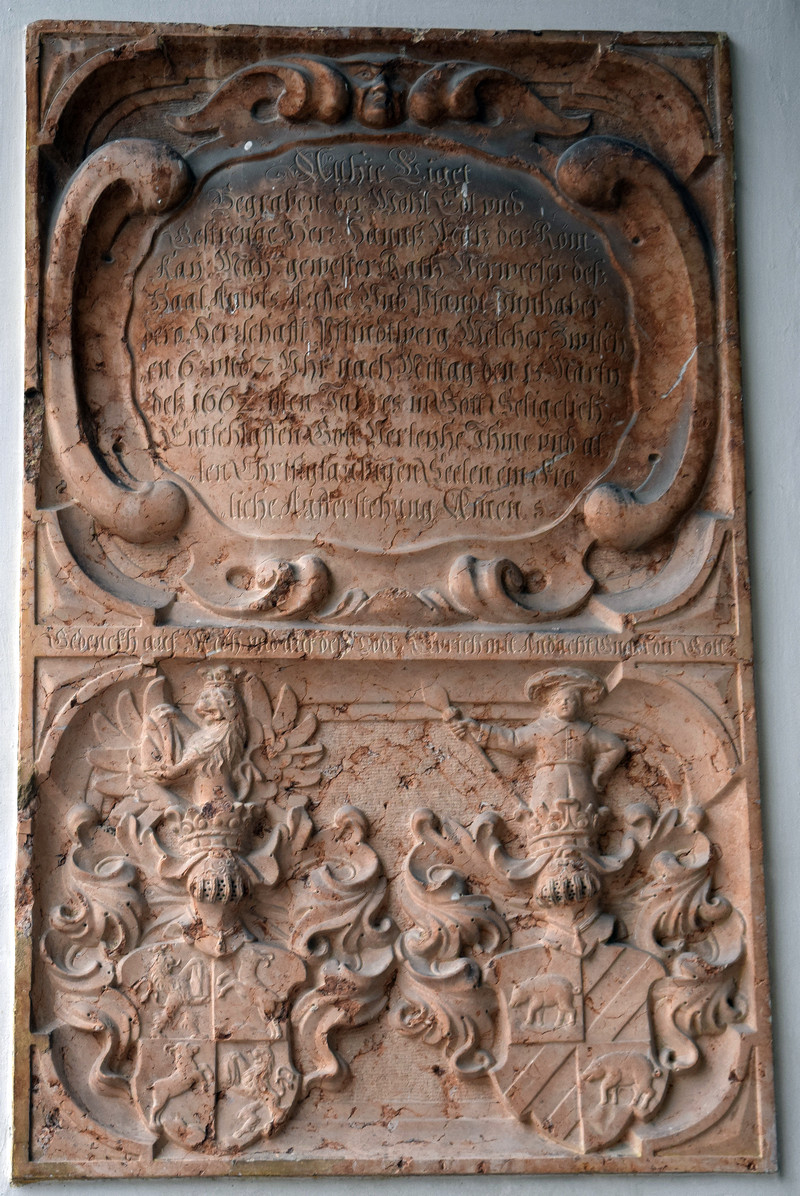 Alhie Liget
Begraben der Wohl Edl vnd
Gestrenge Herr Hannß Veith der Röm
Kay: May: gewester Rath Verweser deß
Haal Ambts Aussee Vnd Pfandt Innhaber
Herrschafft Pflindtsperg Welcher Zwisch
en 6 vnd 7 Vhr nach Mittag den 15 Martÿ
deß 1662 isten Jahres in Gott Seligelich
Entschlaffen Gott Verleyhe Ihme vnd al
len Christglaubigen Seelen ein Frö
liche Aufferstehung Amen
Gedenckh auf Mich vnd auf den Todt mit Andacht Gott